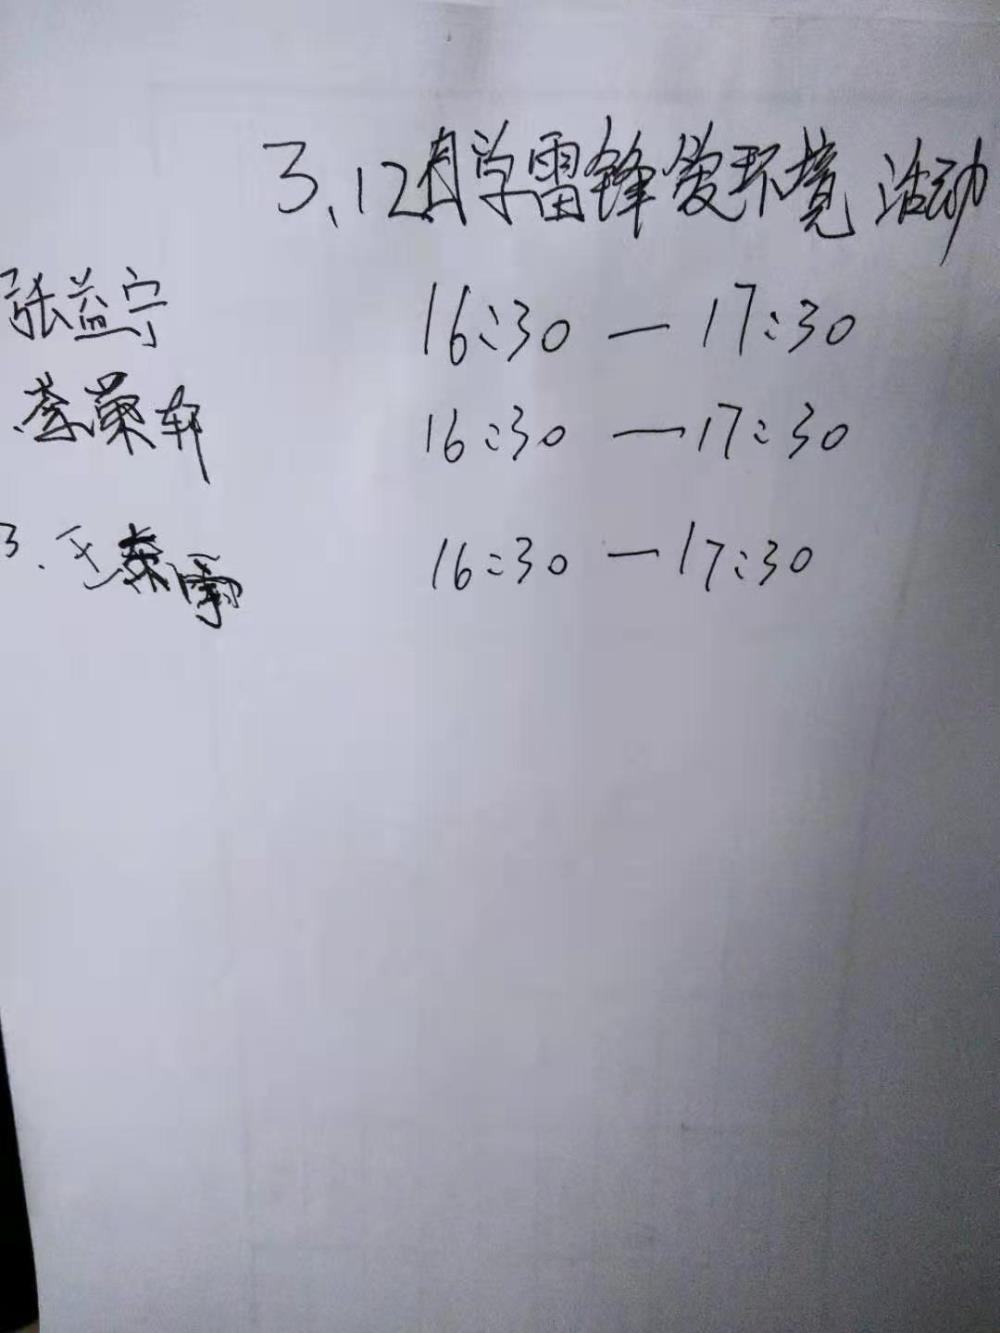 3.12日学雷锋爱环境 活动
张益宁 16:30 — 17:30
李荣轩 16:30 — 17:30
3. 16:30 — 17:30